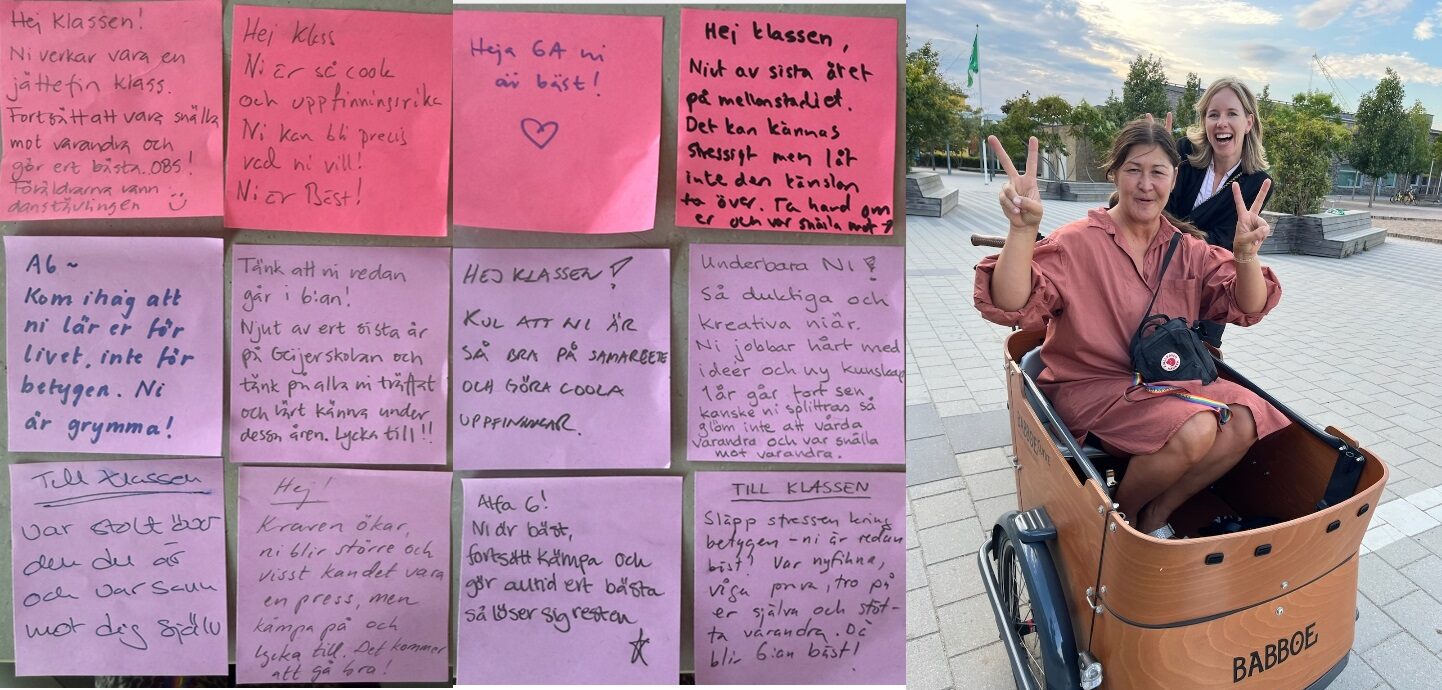 Hej klassen!
Ni verkar vara en
jättefin klass.
Fortsätt att vara snälla
mot varandra och
gör ert bästa. OBS!
Föräldrarna vann
danstävlingen
Hej klass
Ni är så cool
och uppfinningsrika
Ni kan bli precis
vad ni vill!
Ni är Bäst!
Heja 6A ni
är bäst!
Hej klassen,
Njut av sista året
på mellanstadiet.
Det kan kännas
stressigt men låt
inte den känslan
ta över. Ta hand om
er och var snälla mot
A6~
Kom ihåg att
ni lär er för
livet, inte för
betygen. Ni
är grymma!
Tänk att ni redan
går i 6:an!
Njut av ert sista år
på Geijerskolan och
tänk på alla ni träffat
och lärt känna under
dessa åren. Lycka till!!
HEJ KLASSEN!
KUL ATT NI ÄR
SÅ BRA PÅ SAMARBETE
OCH GÖRA COOLA
UPPFINNINGAR.
Underbara NI!
Så duktiga och
kreativa ni är.
Ni jobbar hårt med
ideer och ny kunskap
1 år går fort sen
kanske ni splittras så
glöm inte att vårda
varandra och var snälla
mot varandra.
Till klassen
Var stolt över
den du är
och var sann
mot dig själv
Hej!
Kraven ökar,
ni blir större och
visst kan det vara
en press, men
kämpa på och
lycka till. Det kommer
att gå bra!
Alfa 6!
Ni är bäst,
fortsätt kämpa och
gör alltid ert bästa
så löser sig resten
TILL KLASSEN
Släpp stressen kring
betygen - ni är redan
bäst! Var nyfikna,
våga prova, tro på
er själva och stöt-
ta varandra. Då
blir 6:an bäst!
BABBOE
BABBOE